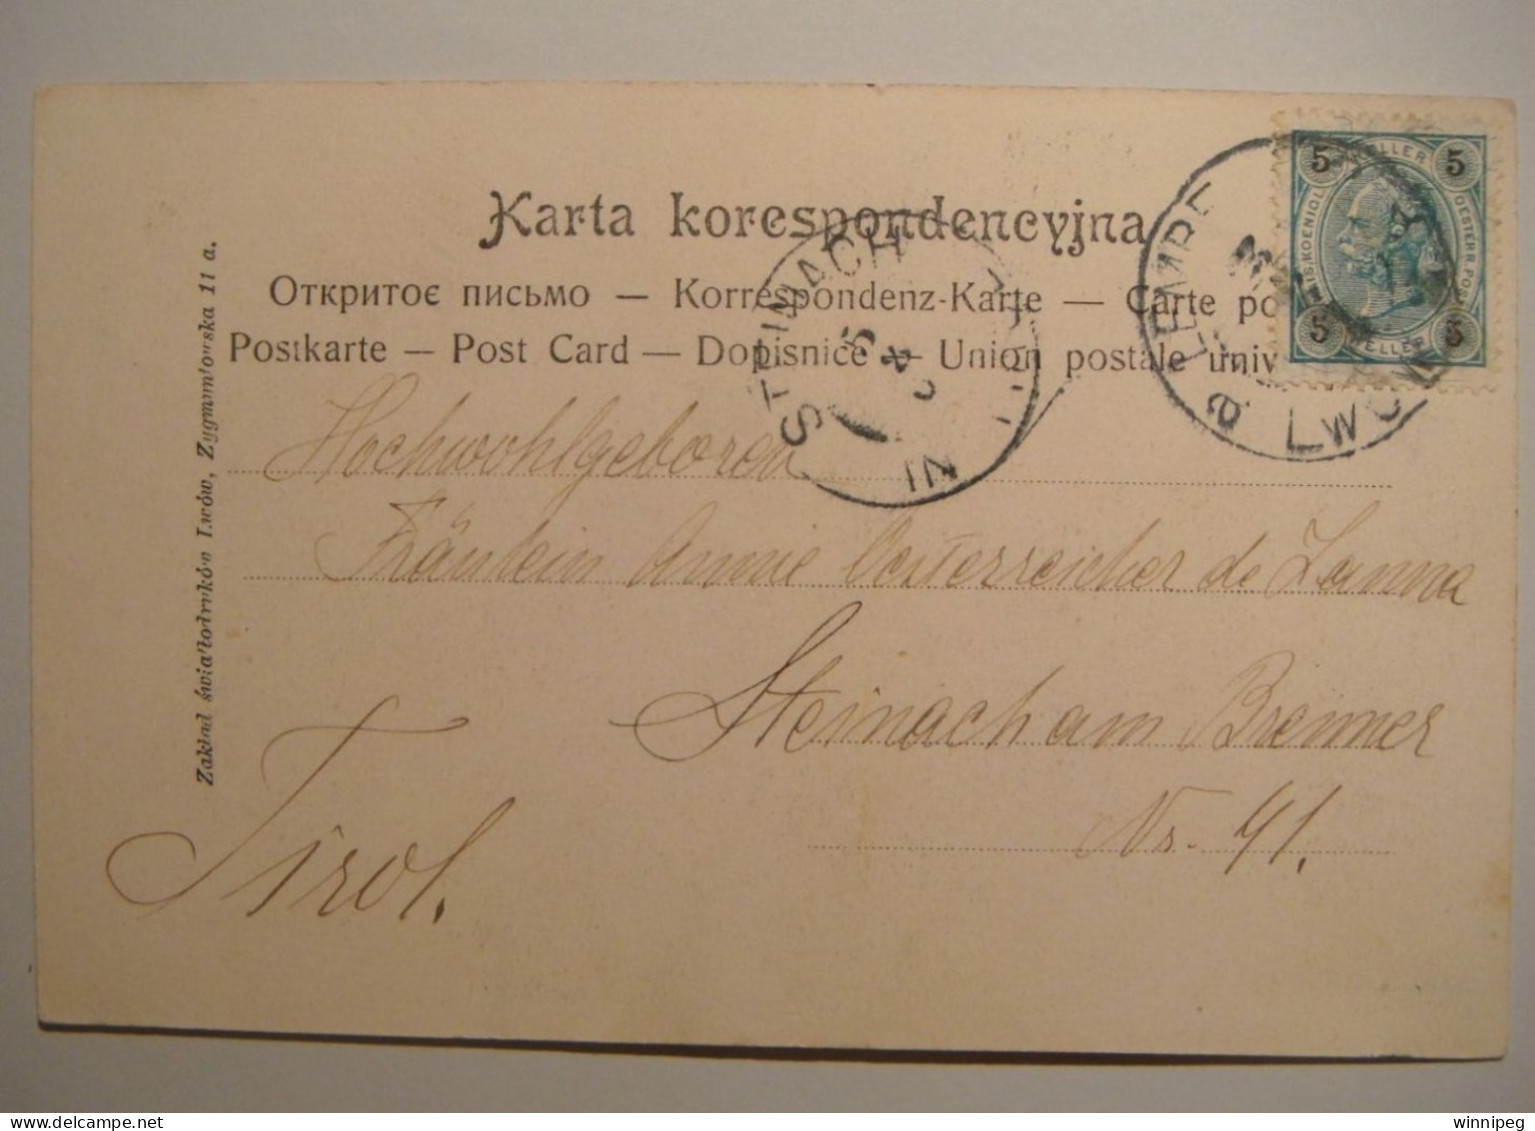 Karta korespondencyjna
Откритоє письмо — Korrespondenz-Karte — Carte po
Postkarte — Post Card — Dopisnice — Union postale univ
Zakład światłodruków Lwów, Zygmuntowska 11 a.
Hochwohlgeboren
Fräulein Anne Oesterreicher de
Steinach am Brenner
Nr. 41.
Tirol.
STEINACH
IN TIROL
LEMBE
LWÓW
5 HELLER 5
KAIS. KOENIGL. OESTERR. POST
5 HELLER 5
winnipeg